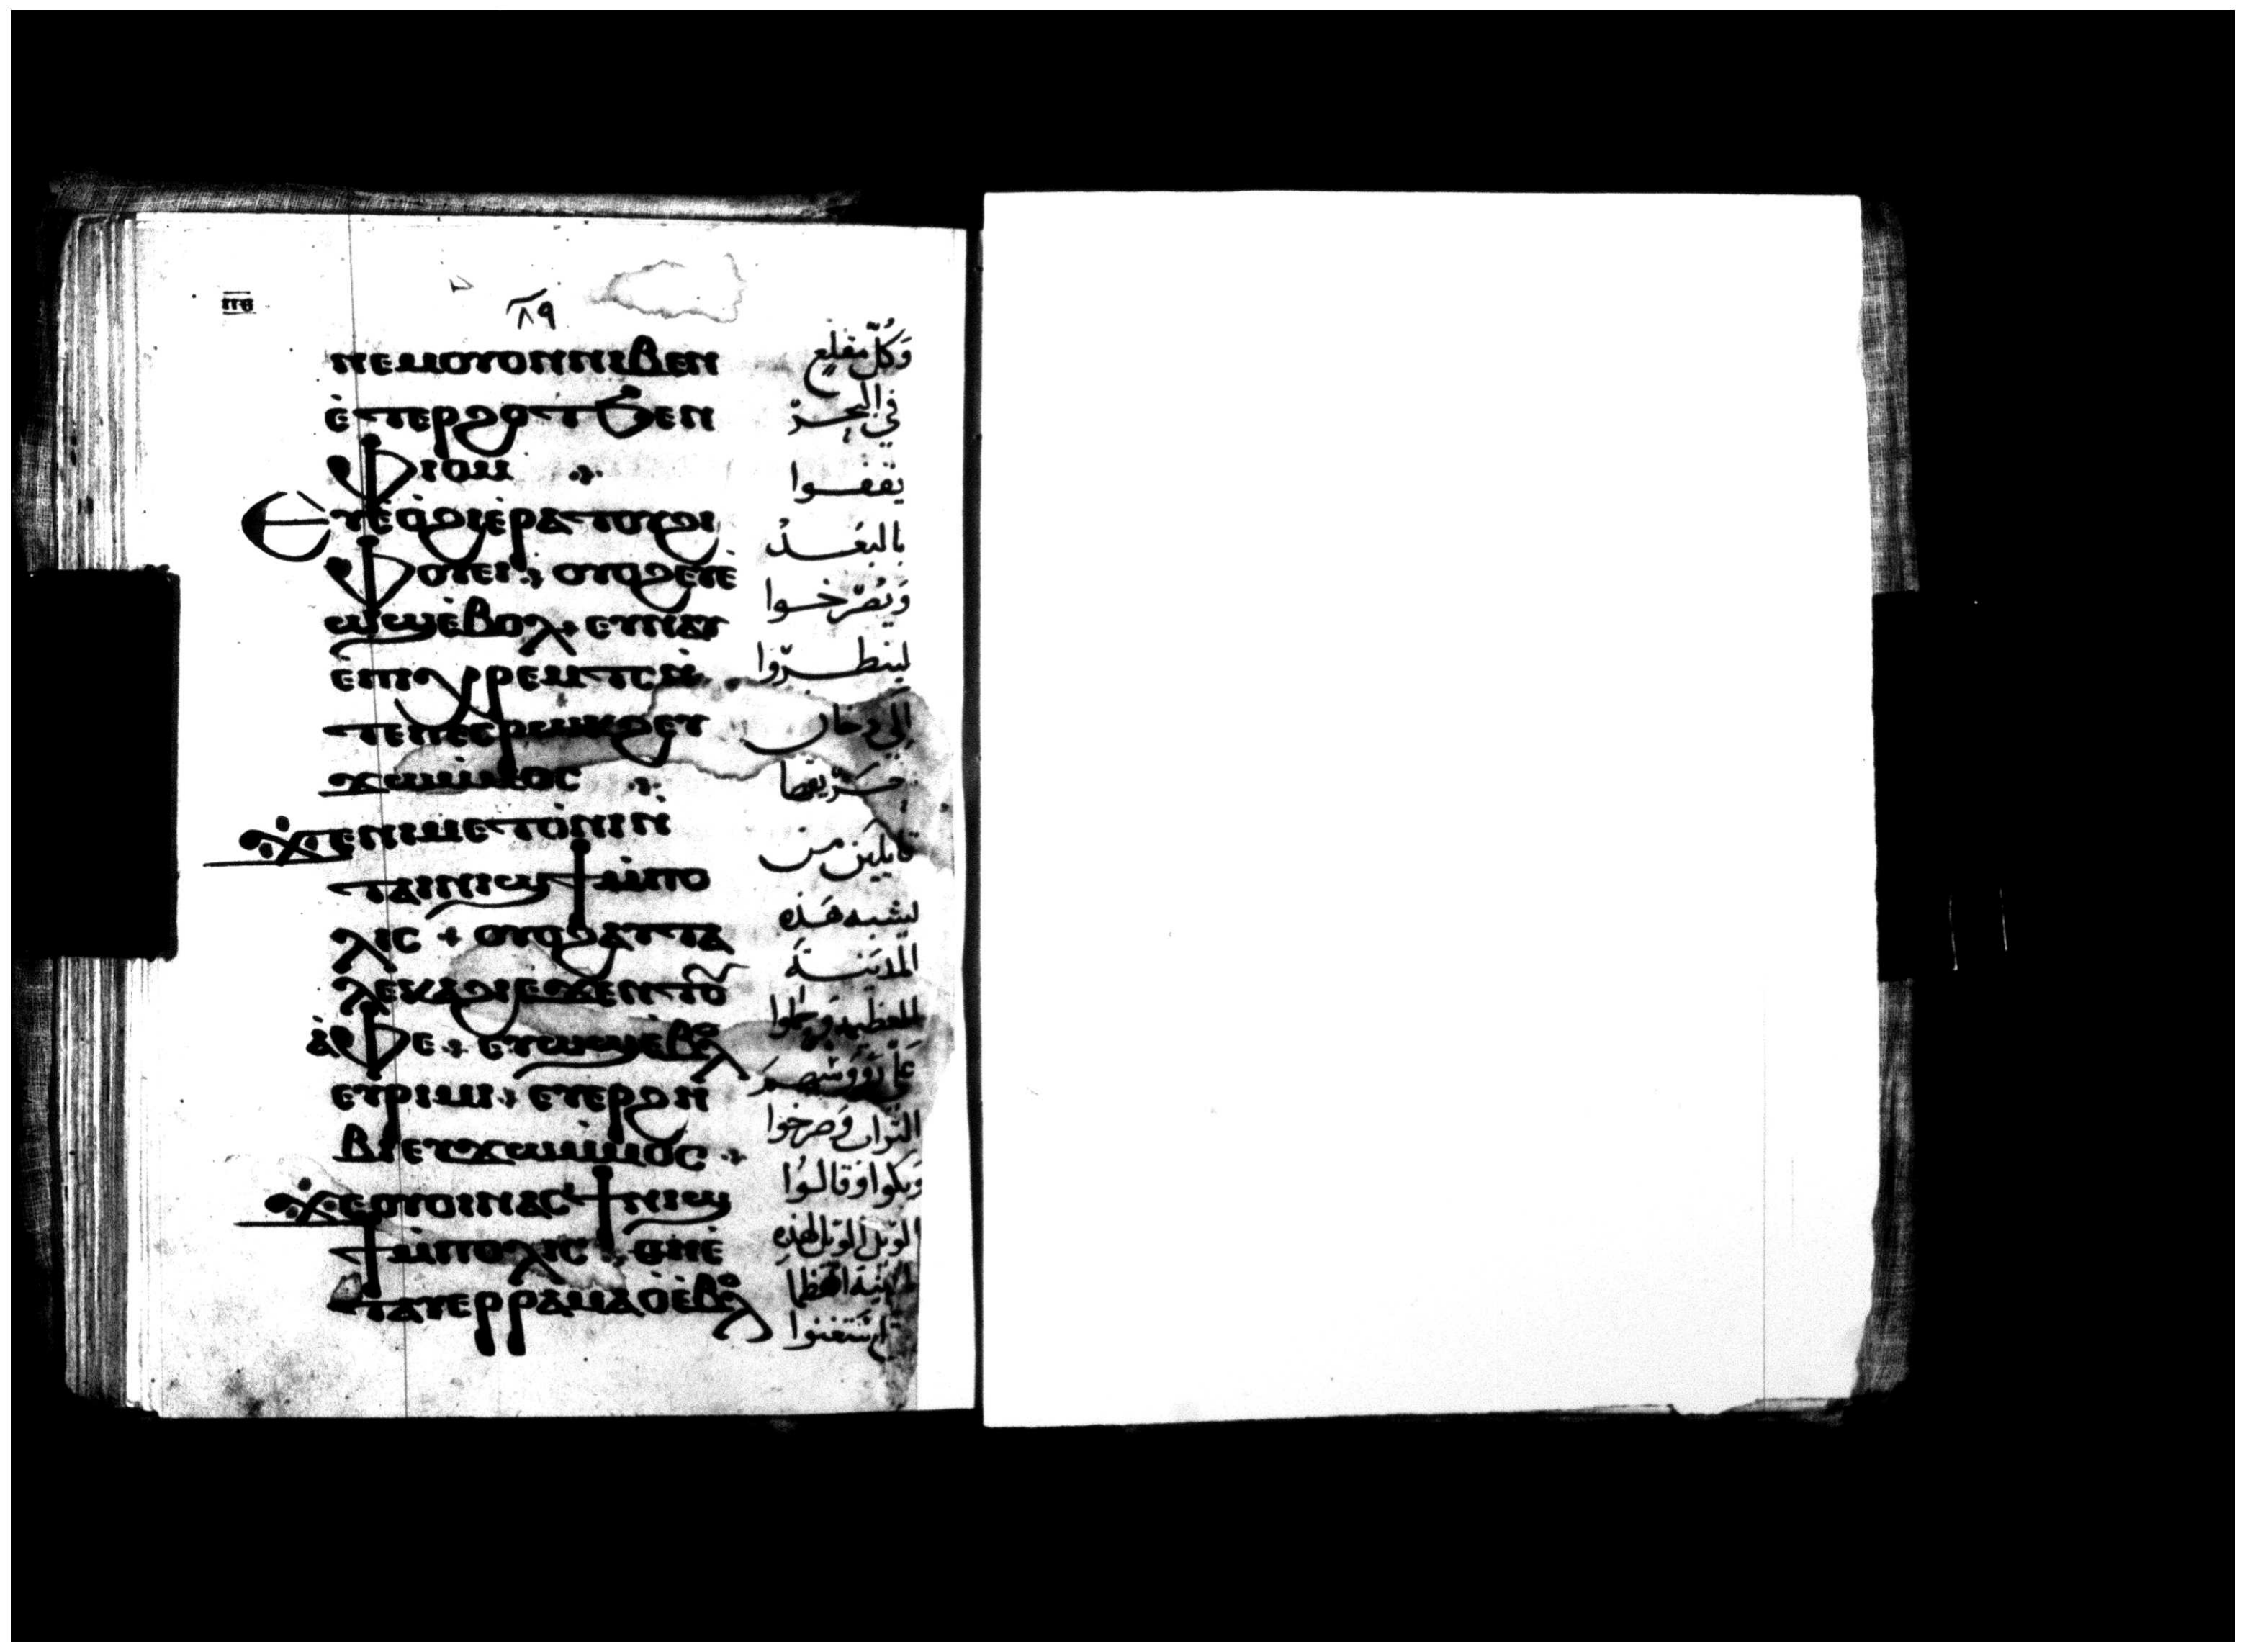 ⲡⲑ
٨٩
ⲛⲉⲙⲟⲩⲟⲛⲛⲓⲃⲉⲛ
ⲉ̀ⲧⲉⲣϩⲱⲧϧⲉⲛ
ⲫⲓⲟⲙ
ⲉⲩⲉ̀ⲟ̀ϩⲓⲉ̀ⲣⲁⲧⲟⲩϩⲓ
ⲫⲟⲩⲉⲓ ⲟⲩⲟϩⲉⲩⲉ̀
ⲱϣⲉ̀ⲃⲟⲗ ⲉⲩⲛⲁⲩ
ⲉ̀ⲡⲓⲭⲣⲉⲙⲧⲥⲛ̀
ⲧⲉⲡⲉⲥⲣⲱⲕϩⲉⲩ
ϫⲱⲙ̀ⲙⲟⲥ
ϫⲉⲛⲓⲙⲡⲉⲧⲟ̀ⲛⲓⲛ̀
ⲧⲁⲓⲛⲓϣϯⲙ̀ⲡⲟ
ⲗⲓⲥ ⲟⲩⲟϩⲁⲩⲧⲁ
ⲗⲉⲕⲁϩⲓⲉϫⲉⲛⲧⲟⲩ
ⲁ̀ⲫⲉ ⲉⲩⲱϣⲉ̀ⲃⲟⲗ
ⲉⲩⲣⲓⲙⲓ ⲉⲩⲉⲣϩⲏ
ⲃⲓⲉⲩϫⲱⲙ̀ⲙⲟⲥ
ϫⲉⲟⲩⲟⲓⲛⲁⲥϯⲛⲓϣ
ϯⲙ̀ⲡⲟⲗⲓⲥ ⲑⲏⲉ̀
ⲧⲁⲩⲉⲣⲣⲁⲙⲁⲟ̀ⲉ̀ⲃⲟⲗ
وَكُلّ مقلع
في البحر
يقفوا
بالبعد
وَيصرخوا
لينطروا
إلي دخان
حريقها
قايلين من
ليشبه هذه
المدينة
العظيمة وحملوا
علي رووسهم
التراب وصرخوا
وَبكوا وَقالوا
الويل الويل لهذه
المدينة العظما
استغنوا